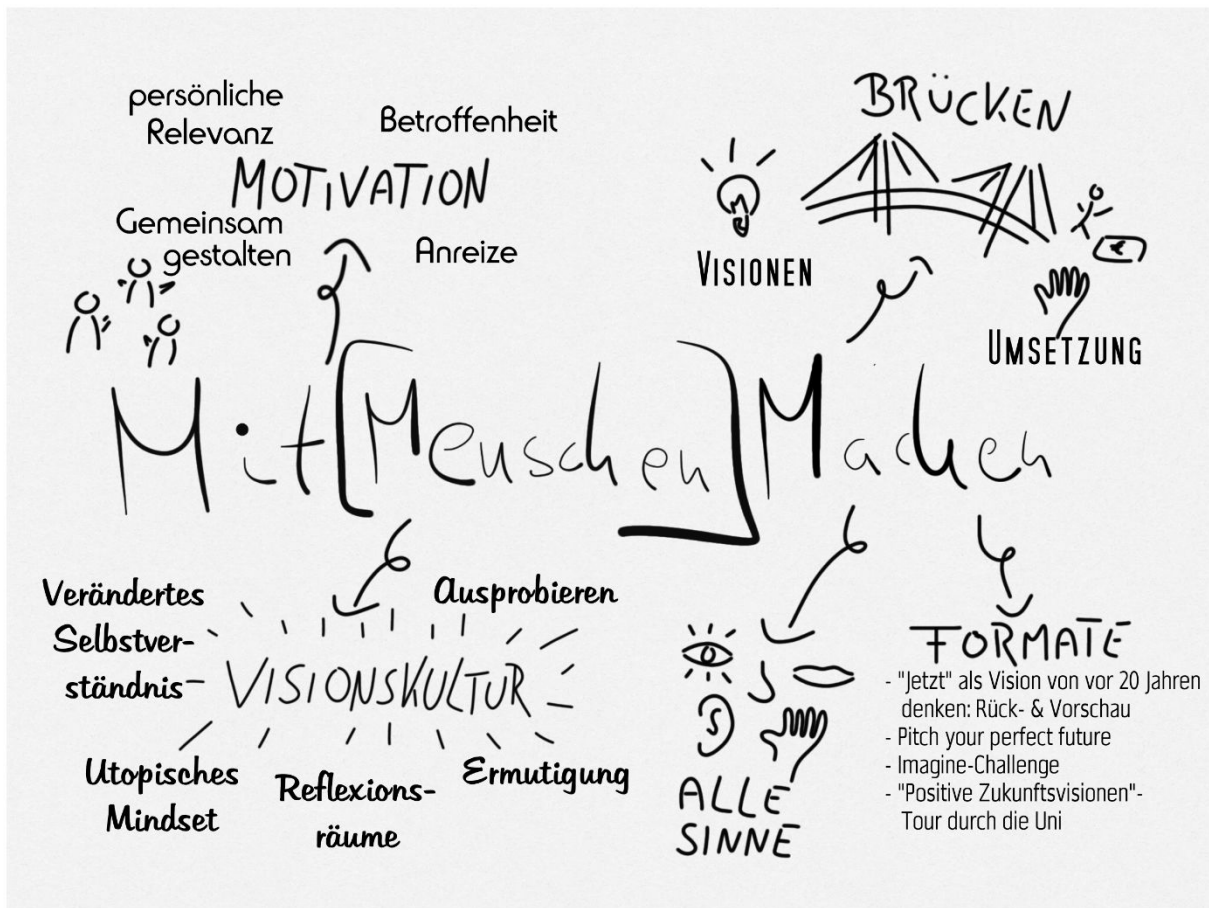 persönliche
Relevanz
Betroffenheit
MOTIVATION
Gemeinsam
gestalten
Anreize
BRÜCKEN
VISIONEN
UMSETZUNG
Mit[Menschen]Machen
Verändertes
Selbstver-
ständnis
Ausprobieren
VISIONSKULTUR
Utopisches
Mindset
Reflexions-
räume
Ermutigung
ALLE
SINNE
FORMATE
- "Jetzt" als Vision von vor 20 Jahren
denken: Rück- & Vorschau
- Pitch your perfect future
- Imagine-Challenge
- "Positive Zukunftsvisionen"-
Tour durch die Uni